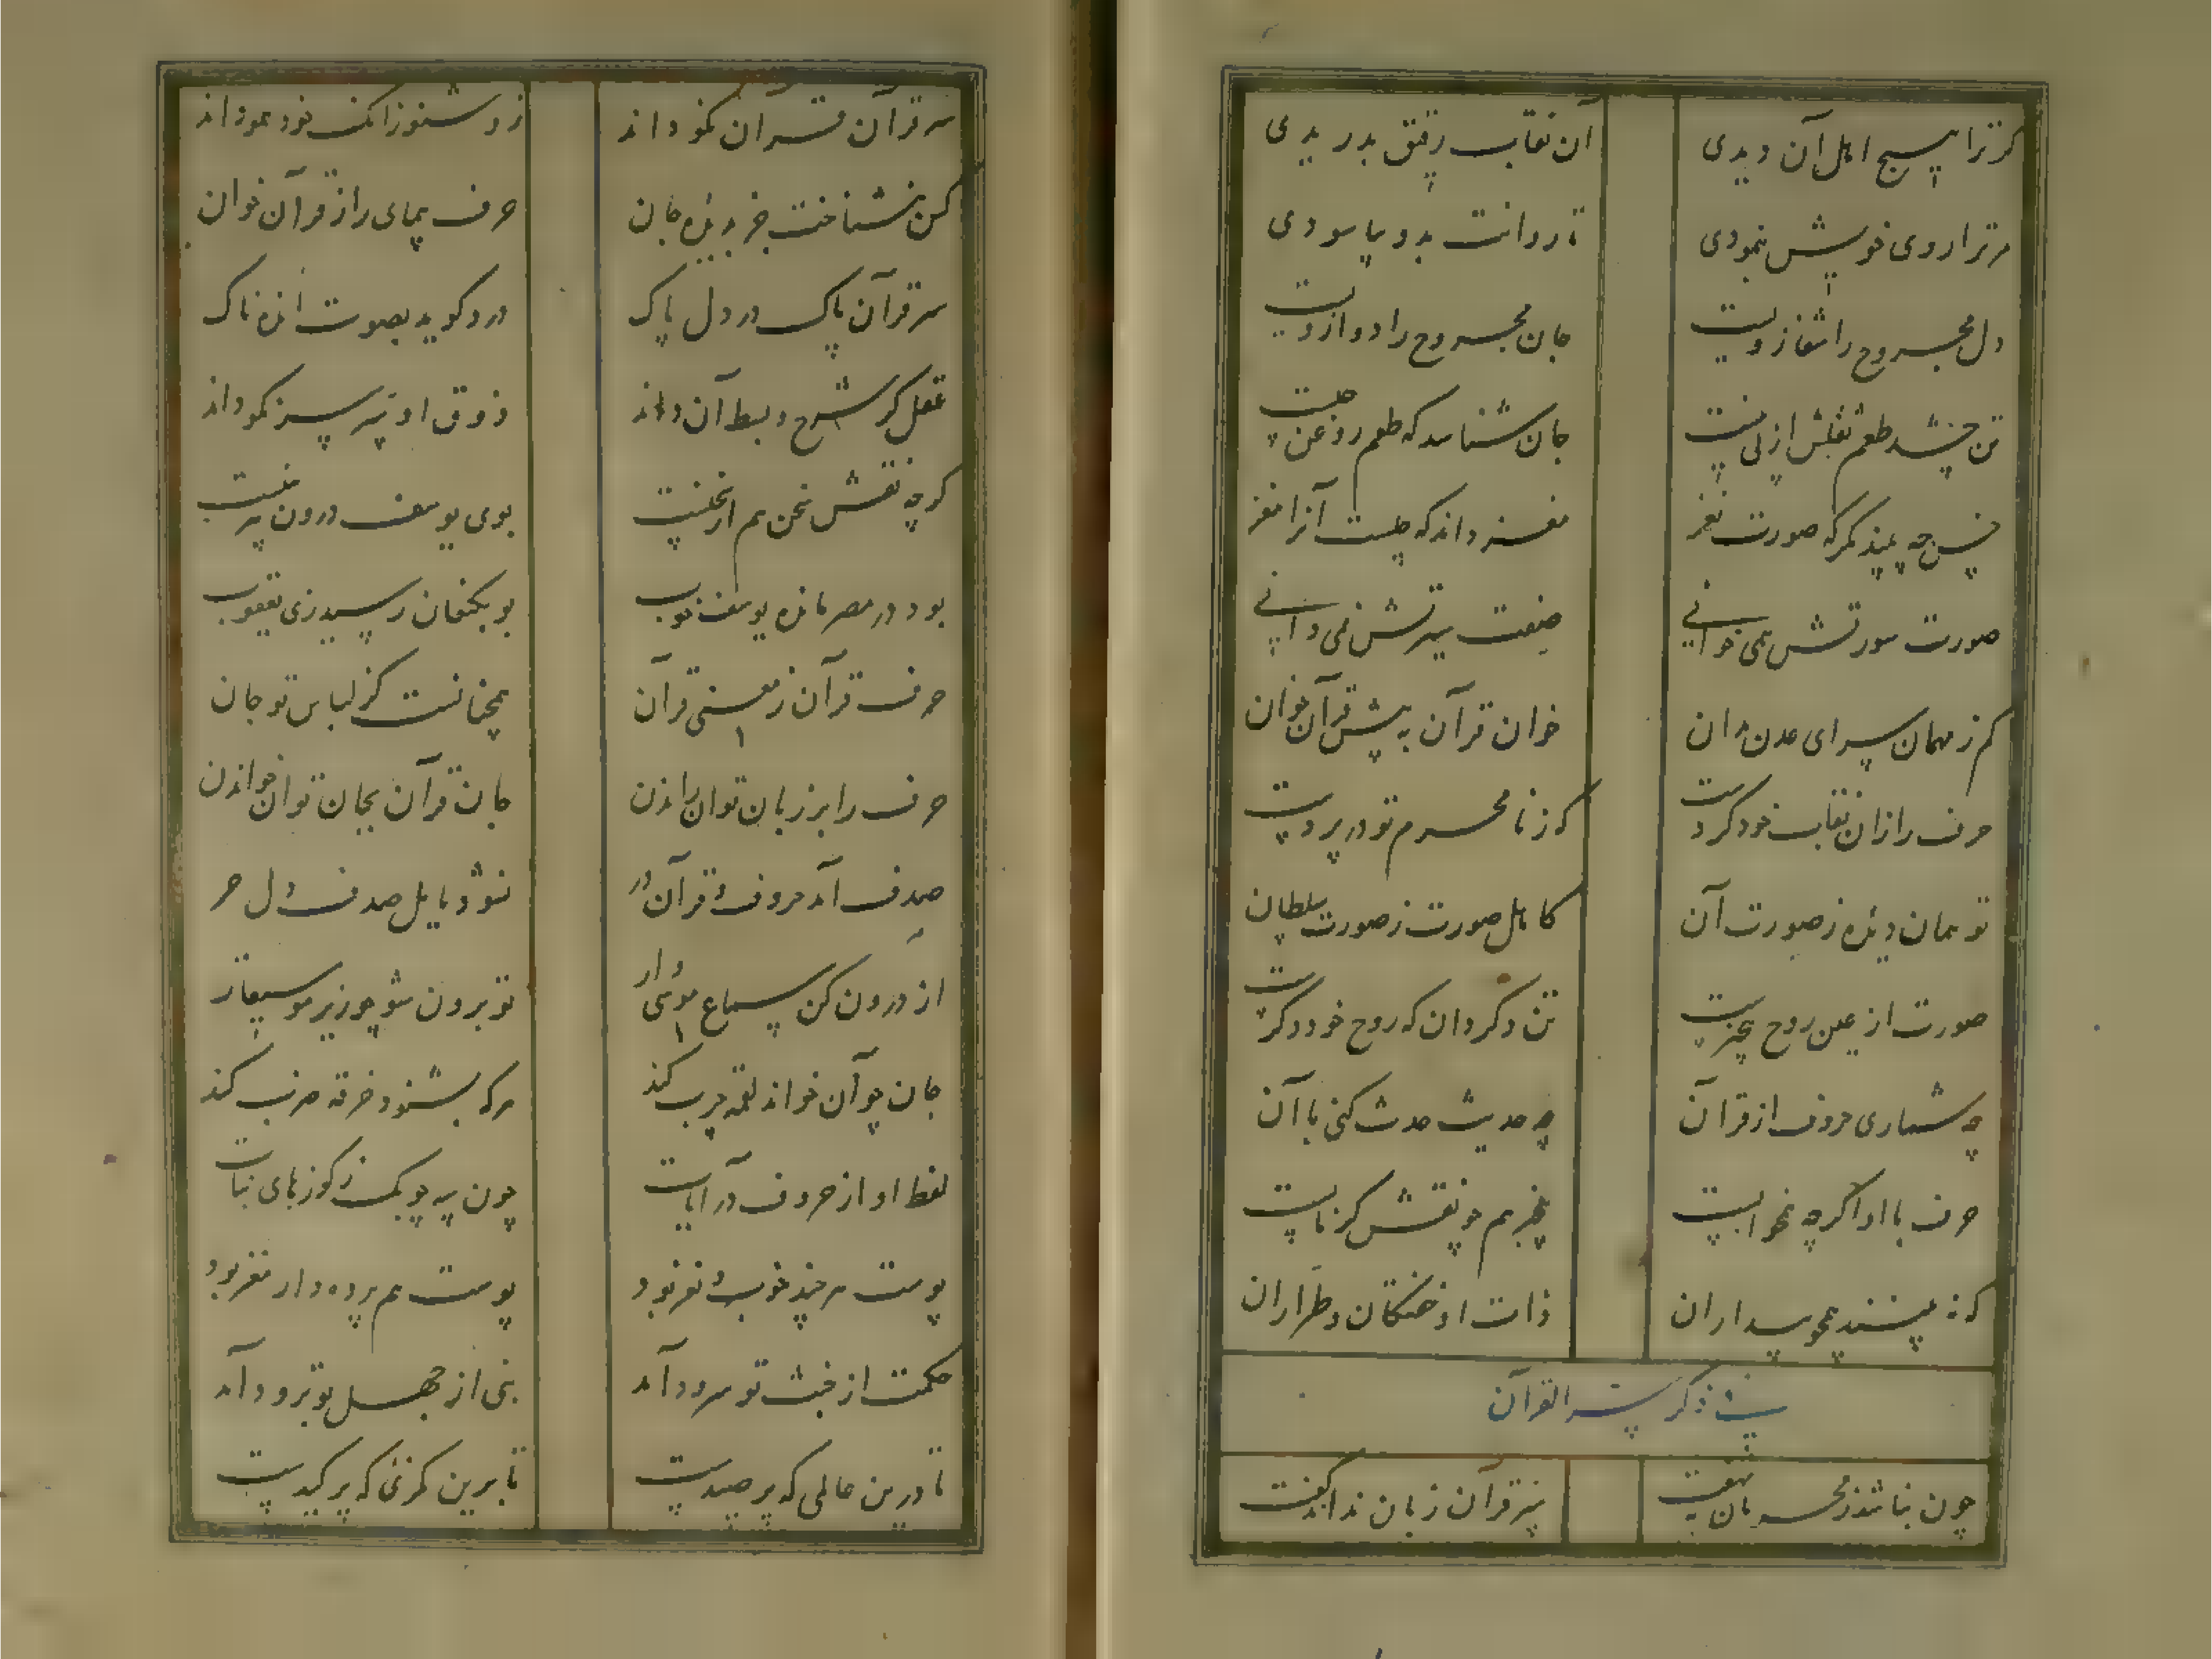 گر ترا هیچ اهل آن دیدی آن نقاب رقیق بدریدی
مر ترا روی خویش بنمودی تا روانت بدو بیاسودی
دل مجروح را شفا زویست جان مجروح را دوا زویست
تن چشد طعم ثفلش از پی زیست جان شناسد که طعم روغن چیست
حس چه بیند مگر که صورت نغز مغز داند که چیست آنرا مغز
صورت سورتش همی خوانی صفت سیرتش نمی دانی
کم ز مهمان سرای عدن مدان خوان قرآن به پیش قرآن خوان
حرف را زان نقاب خود کردست که ز نامحرم تو در پردست
تو همان دیده ز صورت آن کاهل صورت ز صورت سلطان
صورت از عین روح بیخبرست تن دگر دان که روح خود دگرست
چه شماری حروف از قرآن چه حدیث حدث کنی با آن
حرف با او اگرچه همخوابست بیخبر هم چو نقش گرمابست
که نه بینند همچو بیداران ذات او خفتگان و طراران
فی ذکر سر القرآن
چون نباشد ز محرمان نهفت سر قرآن زبان نداند گفت
سر قرآن قرآن نکو داند زو شنو زانک خود همو داند
کس نشناخت جز بدیده جان حرف پیمای را ز قرآن خوان
سر قرآن پاک در دل پاک درد گوید بصوت اندهناک
عقل کی شرح و بسط آن داند ذوق او سر سر نکو داند
گرچه نقش سخن هم از سخنست بوی یوسف درون پیرهنست
بود در مصر مانده یوسف خوب بو بکنعان رسید زی یعقوب
حرف قرآن ز معنی قرآن همچنانست کز لباس تو جان
حرف را بر زبان توان راندن جان قرآن بجان توان خواندن
صدف آمد حروف و قرآن در نشود مایل صدف دل حر
از درون کن سماع موسی وار نز برون سو چو زیر موسیقار
جان چو آن خواند لقمه چرب کند هر که بشنود خرقه ضرب کند
لفظ او از حروف در آیات چون سه چوبک ز کوزهای نبات
پوست هر چند خوب و نغز بود پوست هم پرده دار مغز بود
حکمت از خبث تو سرود آمد نبی از جهل تو فرود آمد
تا درین عالمی که پر صیدست تا برین مرکزی که پر کیدست